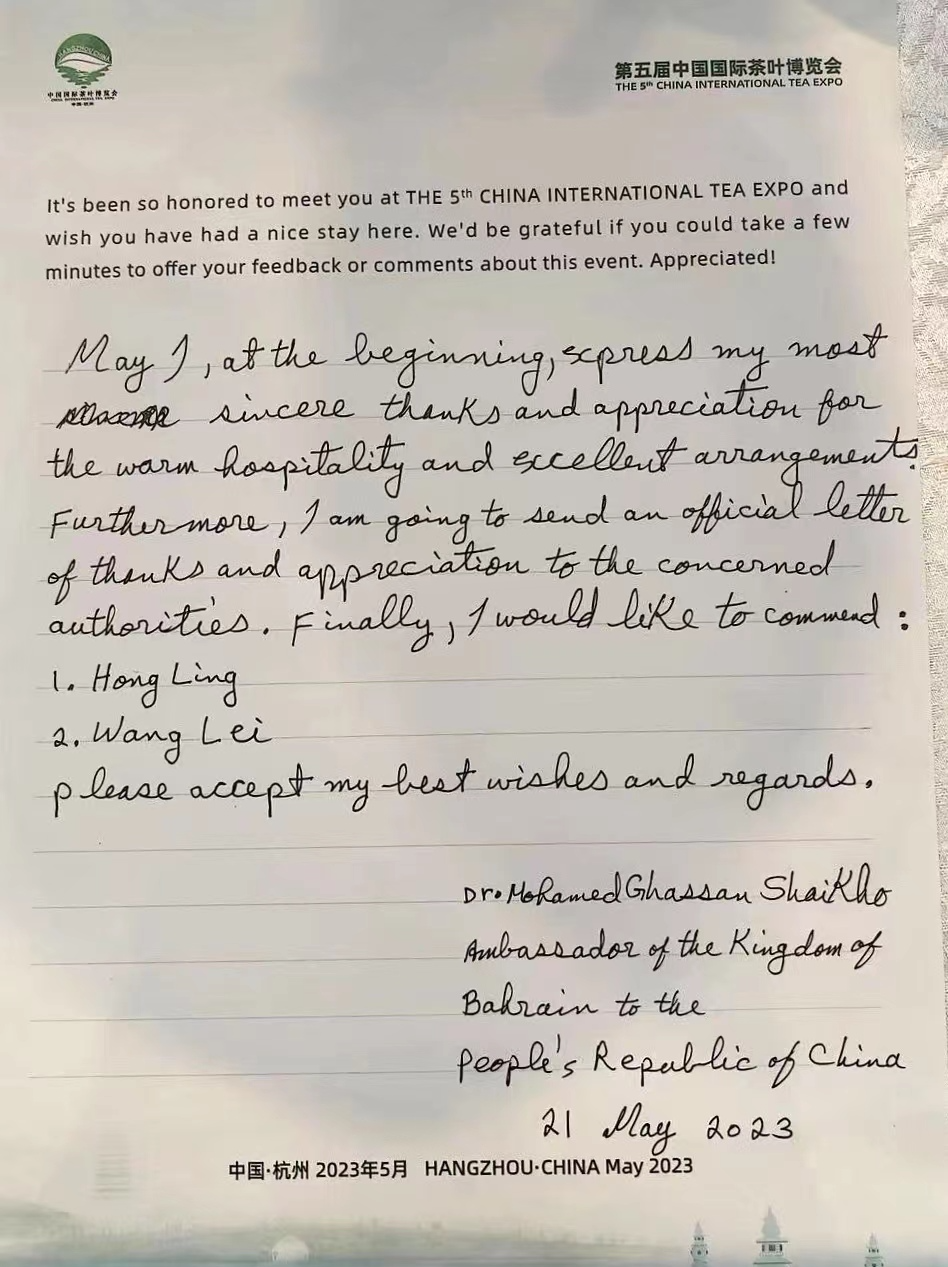 HANGZHOU·CHINA
中国国际茶叶博览会
CHINA INTERNATIONAL TEA EXPO
中国·杭州
第五届中国国际茶叶博览会
THE 5th CHINA INTERNATIONAL TEA EXPO
It's been so honored to meet you at THE 5th CHINA INTERNATIONAL TEA EXPO and
wish you have had a nice stay here. We'd be grateful if you could take a few
minutes to offer your feedback or comments about this event. Appreciated!
May I, at the beginning, express my most
sincere thanks and appreciation for
the warm hospitality and excellent arrangements.
Furthermore, I am going to send an official letter
of thanks and appreciation to the concerned
authorities. Finally, I would like to commend :
1. Hong Ling
2. Wang Lei
please accept my best wishes and regards.
Dr. Mohamed Ghassan Shaikho
Ambassador of the Kingdom of
Bahrain to the
People's Republic of China
21 May 2023
中国·杭州 2023年5月 HANGZHOU·CHINA May 2023